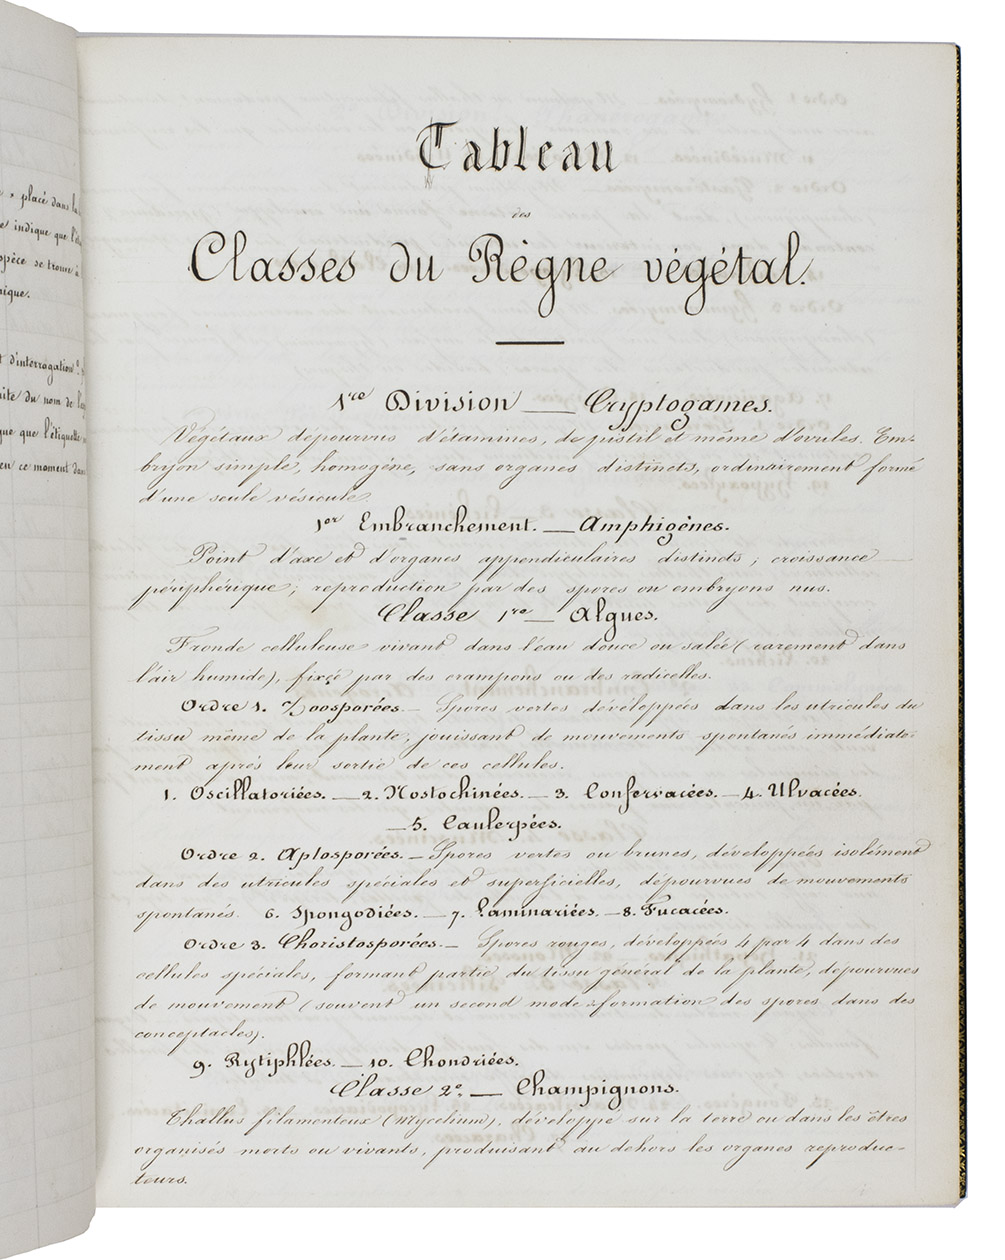 , placé dans la
indique que l'é
spèce se trouve à
nique.
d'interrogation ?
uite du nom de l'
que que l'étiquette
en ce moment dan
Tableau
des
Classes du Règne végétal.
1re Division — Cryptogames.
Végétaux dépourvus d'étamines, de pistil et même d'ovules. Em-
bryon simple, homogène, sans organes distincts, ordinairement formé
d'une seule vésicule.
1er Embranchement. — Amphigènes.
Point d'axe et d'organes appendiculaires distincts ; croissance
périphérique ; reproduction par des spores ou embryons nus.
Classe 1re — Algues.
Fronde celluleuse vivant dans l'eau douce ou salée (rarement dans
l'air humide), fixée par des crampons ou des radicelles.
Ordre 1. Zoosporées. — Spores vertes développées dans les utricules du
tissu même de la plante, jouissant de mouvements spontanés immédiate-
ment après leur sortie de ces cellules.
1. Oscillatoriées. — 2. Nostochinées. — 3. Confervacées. — 4. Ulvacées.
— 5. Caulerpées.
Ordre 2. Aplosporées. — Spores vertes ou brunes, développées isolément
dans des utricules spéciales et superficielles, dépourvues de mouvements
spontanés. 6. Spongodiées. — 7. Laminariées. — 8. Fucacées.
Ordre 3. Choristosporées. — Spores rouges, développées 4 par 4 dans des
cellules spéciales, formant partie du tissu général de la plante, dépourvues
de mouvement (souvent un second mode formation des spores dans des
conceptacles).
9. Rytiphlées. — 10. Chondriées.
Classe 2e. — Champignons.
Thallus filamenteux (Mycelium), développé sur la terre ou dans les êtres
organisés morts ou vivants, produisant au dehors les organes reproduc-
teurs.